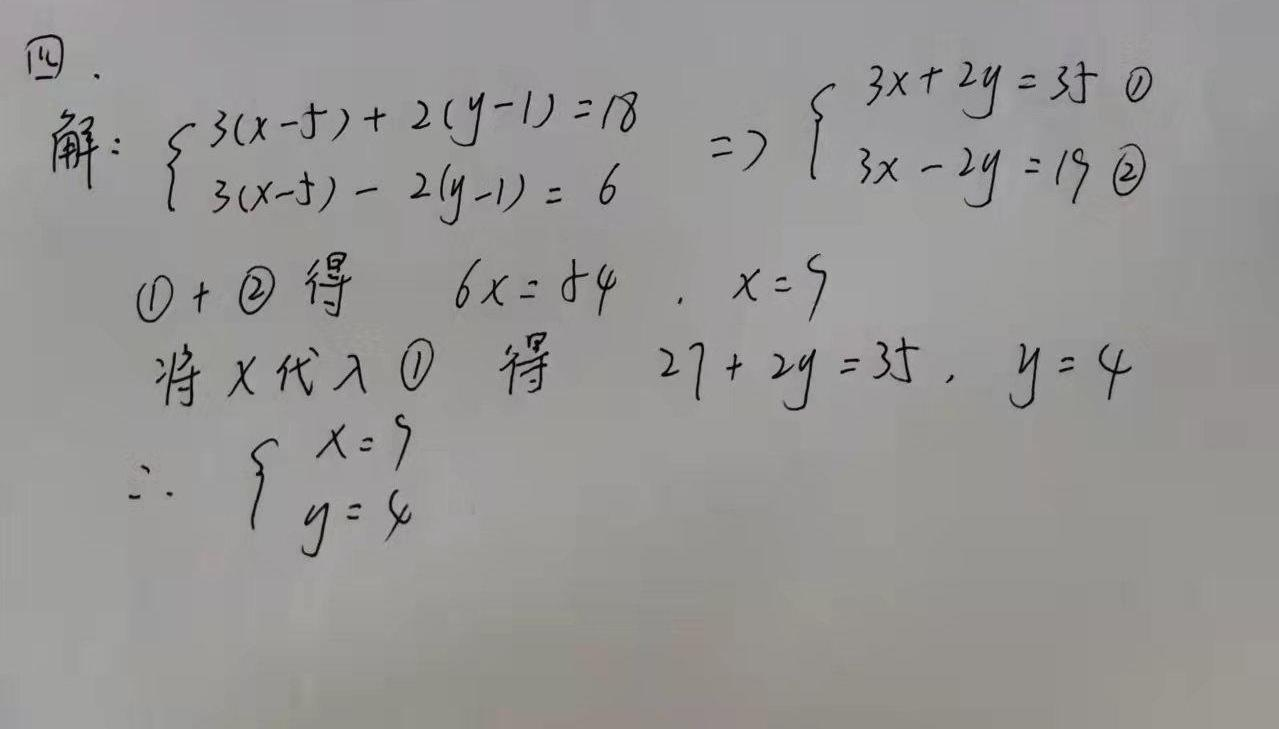 四.
解: { 3(x-5) + 2(y-1) = 18 => { 3x + 2y = 35 ①
3(x-5) - 2(y-1) = 6 3x - 2y = 19 ②
① + ② 得 6x = 54 . x = 9
将 x 代入 ① 得 27 + 2y = 35 , y = 4
∴ { x = 9
y = 4